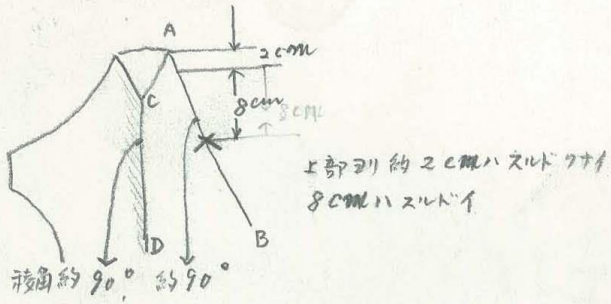 A
2cm
C
8cm
8cm
上部ヨリ約2cmハスルドクナイ
8cmハスルドイ
B
D
稜角約90°
約90°